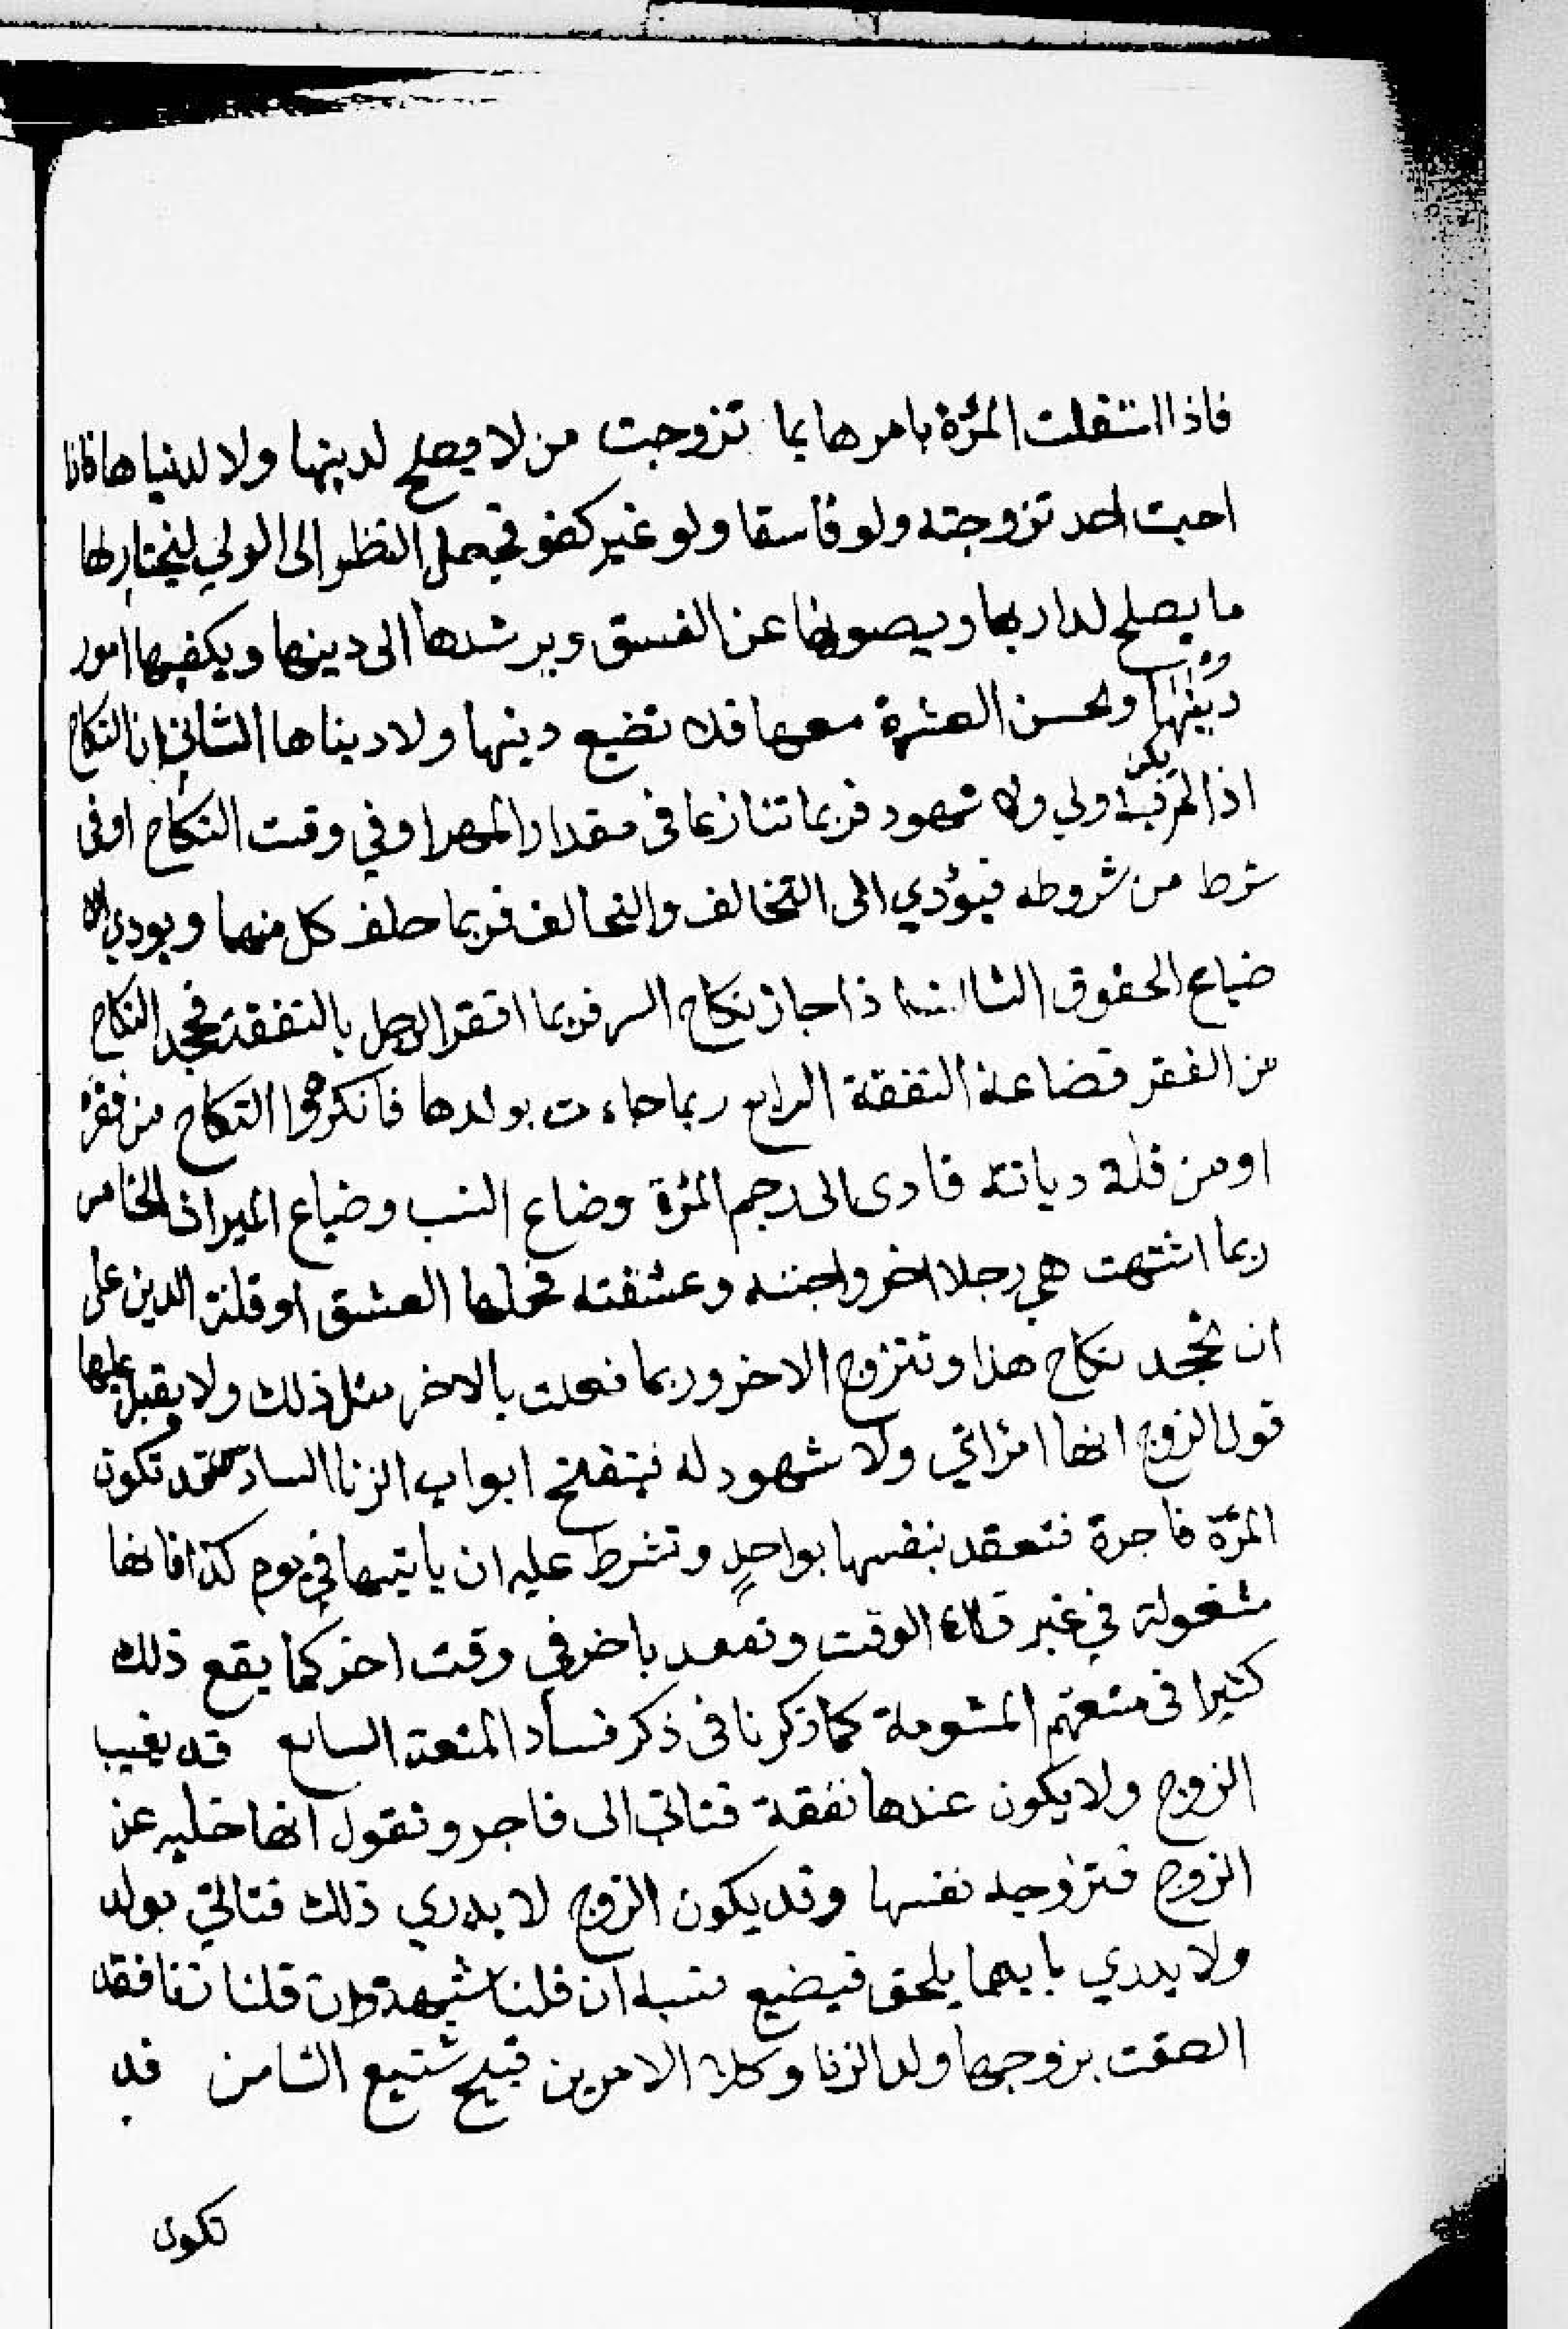 فاذا استقلت المرٔة بامرها بما تزوجت من لا يصلح لدينها ولا لدنياها فاذا
احبت احد تزوجته ولو فاسقا ولو غير كفو فجعل النظر الى الولي ليختار لها
ما يصلح لداربها ويصونها عن الفسق ويرشدها الى دينها ويكفيها امور
دينها ولحسن العشرة معها فلا تضيع دينها ولا ديناها الثاني ان النكاح
اذا لم يكن ولي ولا شهود فربما تنازعا في مقدار المهر او في وقت النكاح او في
شرط من شروطه فيؤدي الى التخالف والتحالف فربما حلف كل منهما ويودي الى
ضياع الحقوق الثالث اذا جاز نكاح السر فربما افتقر الرجل بالنفقة فجحد النكاح
من الفقر فضاعة النفقة الرابع ربما جاءت بولدها فانكر النكاح من فقره
او من قلة ديانته فادى الى رجم المرٔة وضاع النسب وضياع الميراث الخامس
ربما اشتهت هي رجلا اخر واحبته وعشقته فحملها العشق او قلة الدين على
ان تجحد نكاح هذا وتتزوج الاخر وربما فعلت بالاخر مثل ذلك ولا يقبل عليها
قول الزوج انها امرٔاتي ولا شهود له فينفتح ابواب الزنا السادس قد تكون
المرٔة فاجرة فتعقد بنفسها بواحدٍ وتشرط عليه ان ياتيها في يوم كذا فانها
مشغولة في غير ذلك الوقت وتعقد باخر في وقت اخر كما يقع ذلك
كثيرا في متعتهم المشومة كما ذكرنا في ذكر فساد المتعة السابع قد يغيب
الزوج ولا يكون عندها نفقة فتاتي الى فاجر وتقول انها خليه عن
الزوج فتزوجه نفسها وقد يكون الزوج لا يدري ذلك فتاتي بولد
ولا يدري بايهما يلحق فيضيع نسبه ان قلنا شبهة وان قلنا زنا فقد
الصقت بزوجها ولد الزنا وكلا الامرين قبيح شنيع الثامن قد
تكون